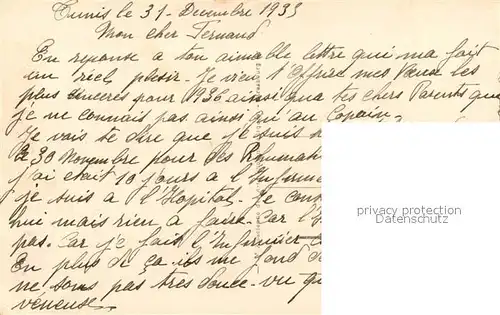 Tunis le 31 - Decembre 1935
Mon cher Fernand
En reponse a ton aimable lettre qui ma fait
un réel plesir - Je vien t'Offrir mes Vœux les
plus sinceres pour 1936 ainsi qua tes chers Parents que
je ne connait pas ainsi qu'au Copain
Je vais te dire que je suis
le 30 Novembre pour des Rhumati
j'ai etait 10 jours a l'Infirme
je suis a l'Hopital - Je
hui mais rien a faire. Car l'
pas. Car je fait l'Infirmier
En plus de ça - ils me fond
ne sons pas tres douce - vu qu
veneuse
privacy protection